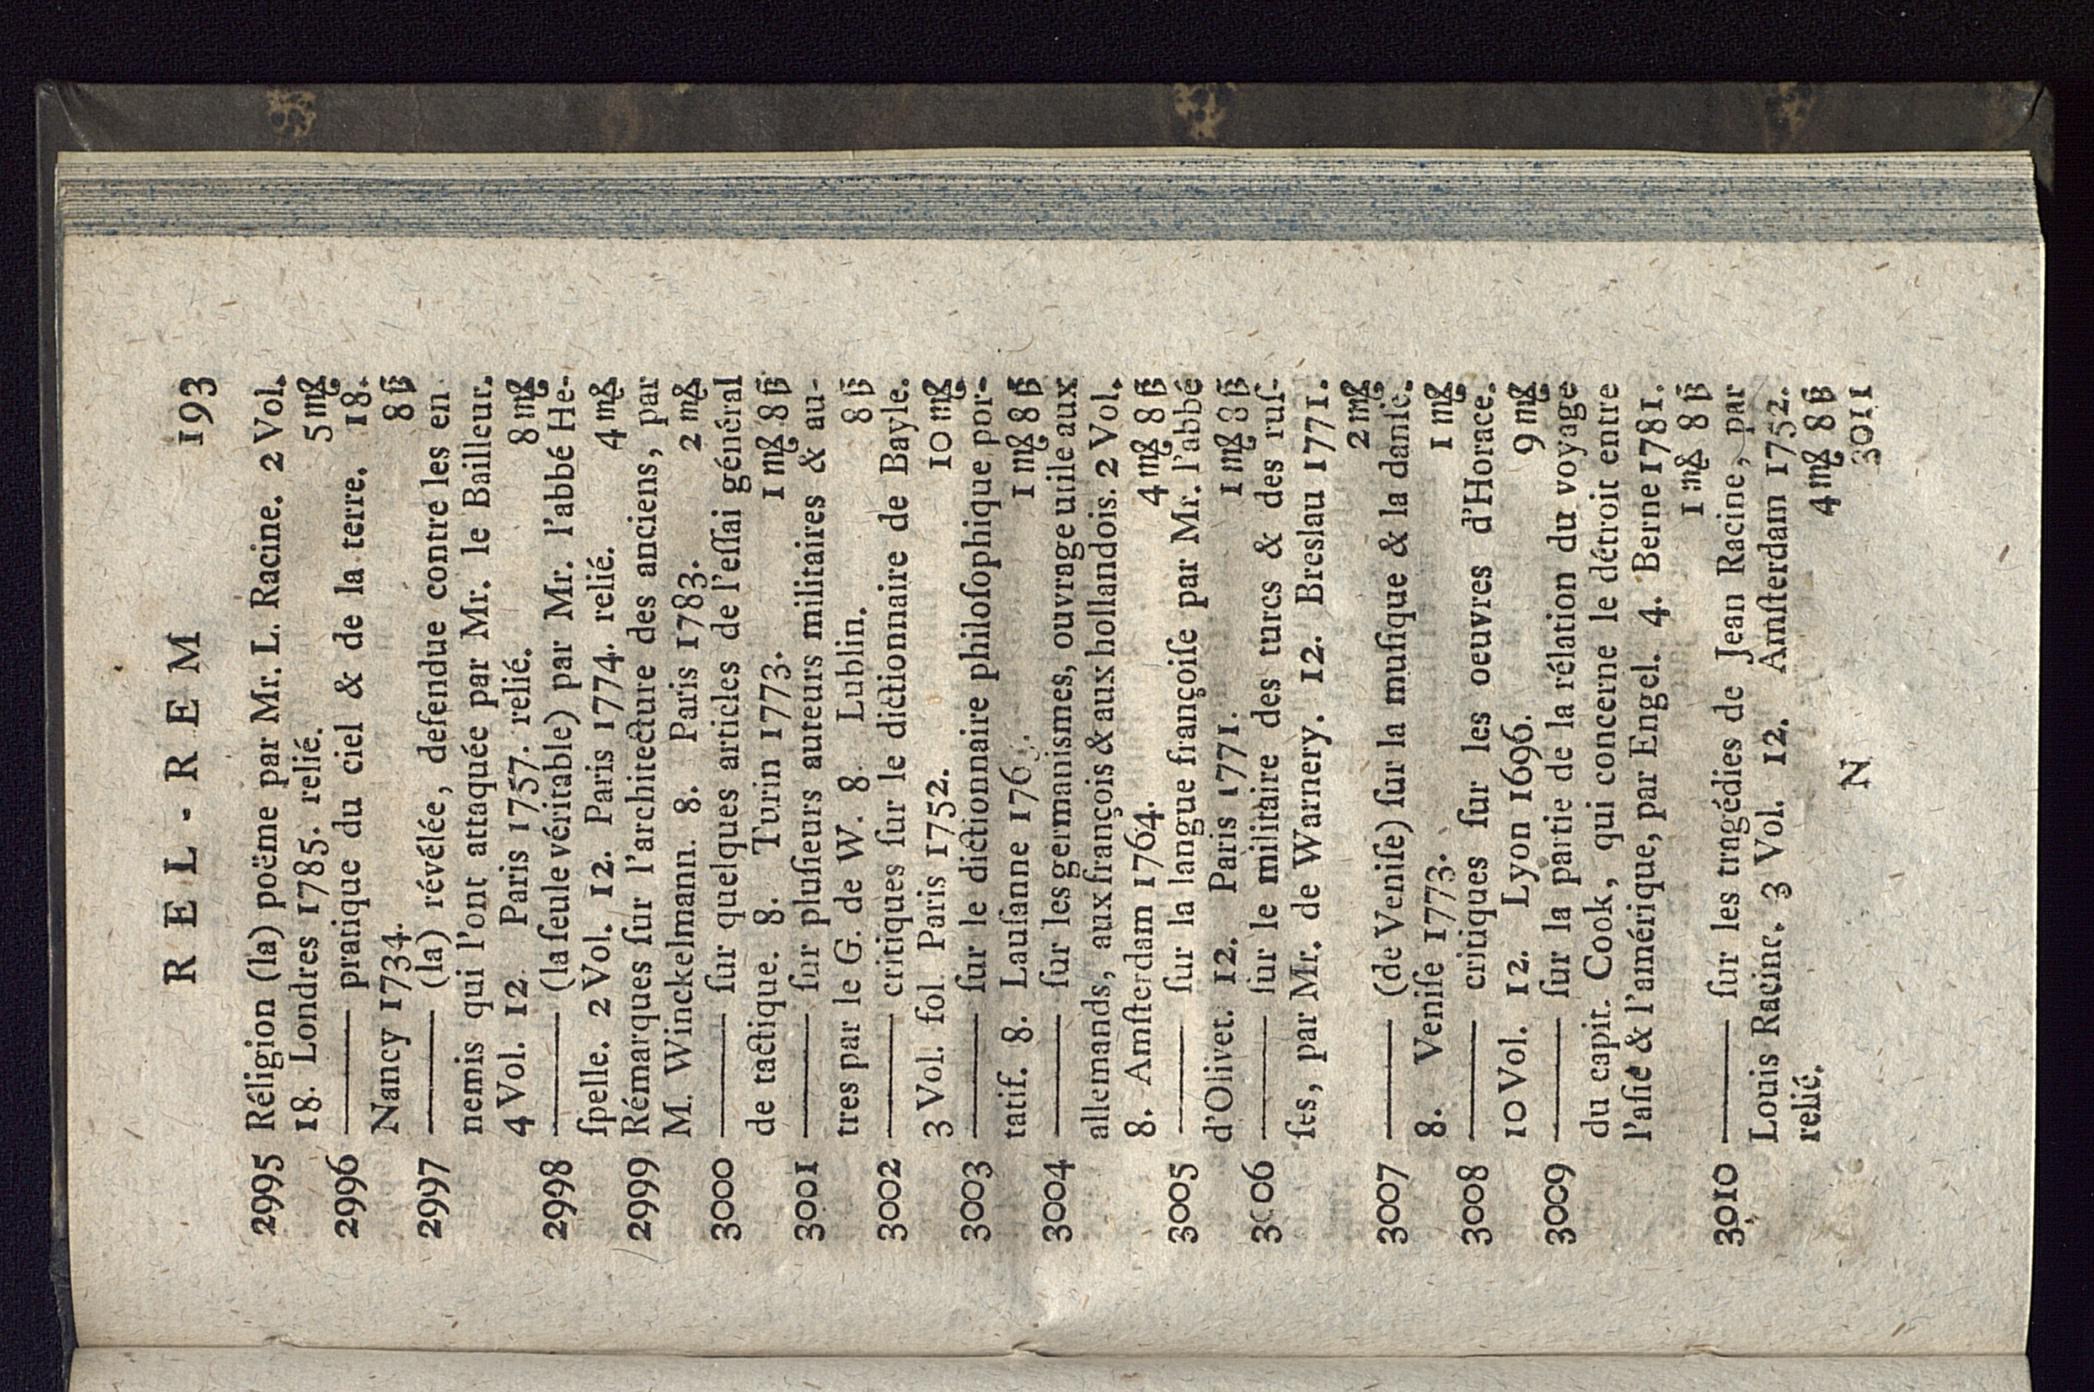 REL-REM 193
2995 Réligion (la) poëme par Mr. L. Racine. 2 Vol.
18. Londres 1785. relié. 5 m&
2996 —— pratique du ciel & de la terre. 18.
Nancy 1734. 8 ß
2997 —— (la) révélée, defendue contre les en
nemis qui l'ont attaquée par Mr. le Bailleur.
4 Vol. 12 Paris 1757. relié. 8 m&
2998 —— (la ſeule véritable) par Mr. l'abbé He-
ſpelle. 2 Vol. 12. Paris 1774. relié. 4 m&
2999 Rémarques ſur l'architecture des anciens, par
M. Winckelmann. 8. Paris 1783. 2 m&
3000 —— ſur quelques articles de l'eſſai général
de tactique. 8. Turin 1773. 1 m& 8 ß
3001 —— ſur pluſieurs auteurs militaires & au-
tres par le G. de W. 8 Lublin. 8 ß
3002 —— critiques ſur le dictionnaire de Bayle.
3 Vol. fol. Paris 1752. 10 m&
3003 —— ſur le dictionnaire philoſophique por-
tatif. 8. Lauſanne 1 m& 8 ß
3004 —— ſur les germanismes, ouvrage utile aux
allemands, aux françois & aux hollandois. 2 Vol.
8. Amſterdam 1764. 4 m& 8 ß
3005 —— ſur la langue françoiſe par Mr. l'abbé
d'Olivet. 12. Paris 1771. 1 m& 8 ß
3006 —— ſur le militaire des turcs & des ruſ-
ſes, par Mr. de Warnery. 12. Breslau 1771.
2 m&
3007 —— (de Veniſe) ſur la muſique & la danſe.
8. Veniſe 1773. 1 m&
3008 —— critiques ſur les oeuvres d'Horace.
10 Vol. 12. Lyon 1696. 9 m&
3009 —— ſur la partie de la rélation du voyage
du capit. Cook, qui concerne le détroit entre
l'aſie & l'amérique, par Engel. 4. Berne 1781.
1 m& 8 ß
3010 —— ſur les tragédies de Jean Racine, par
Louis Racine. 3 Vol. 12. Amſterdam 1752.
relié. 4 m& 8 ß
N 3011